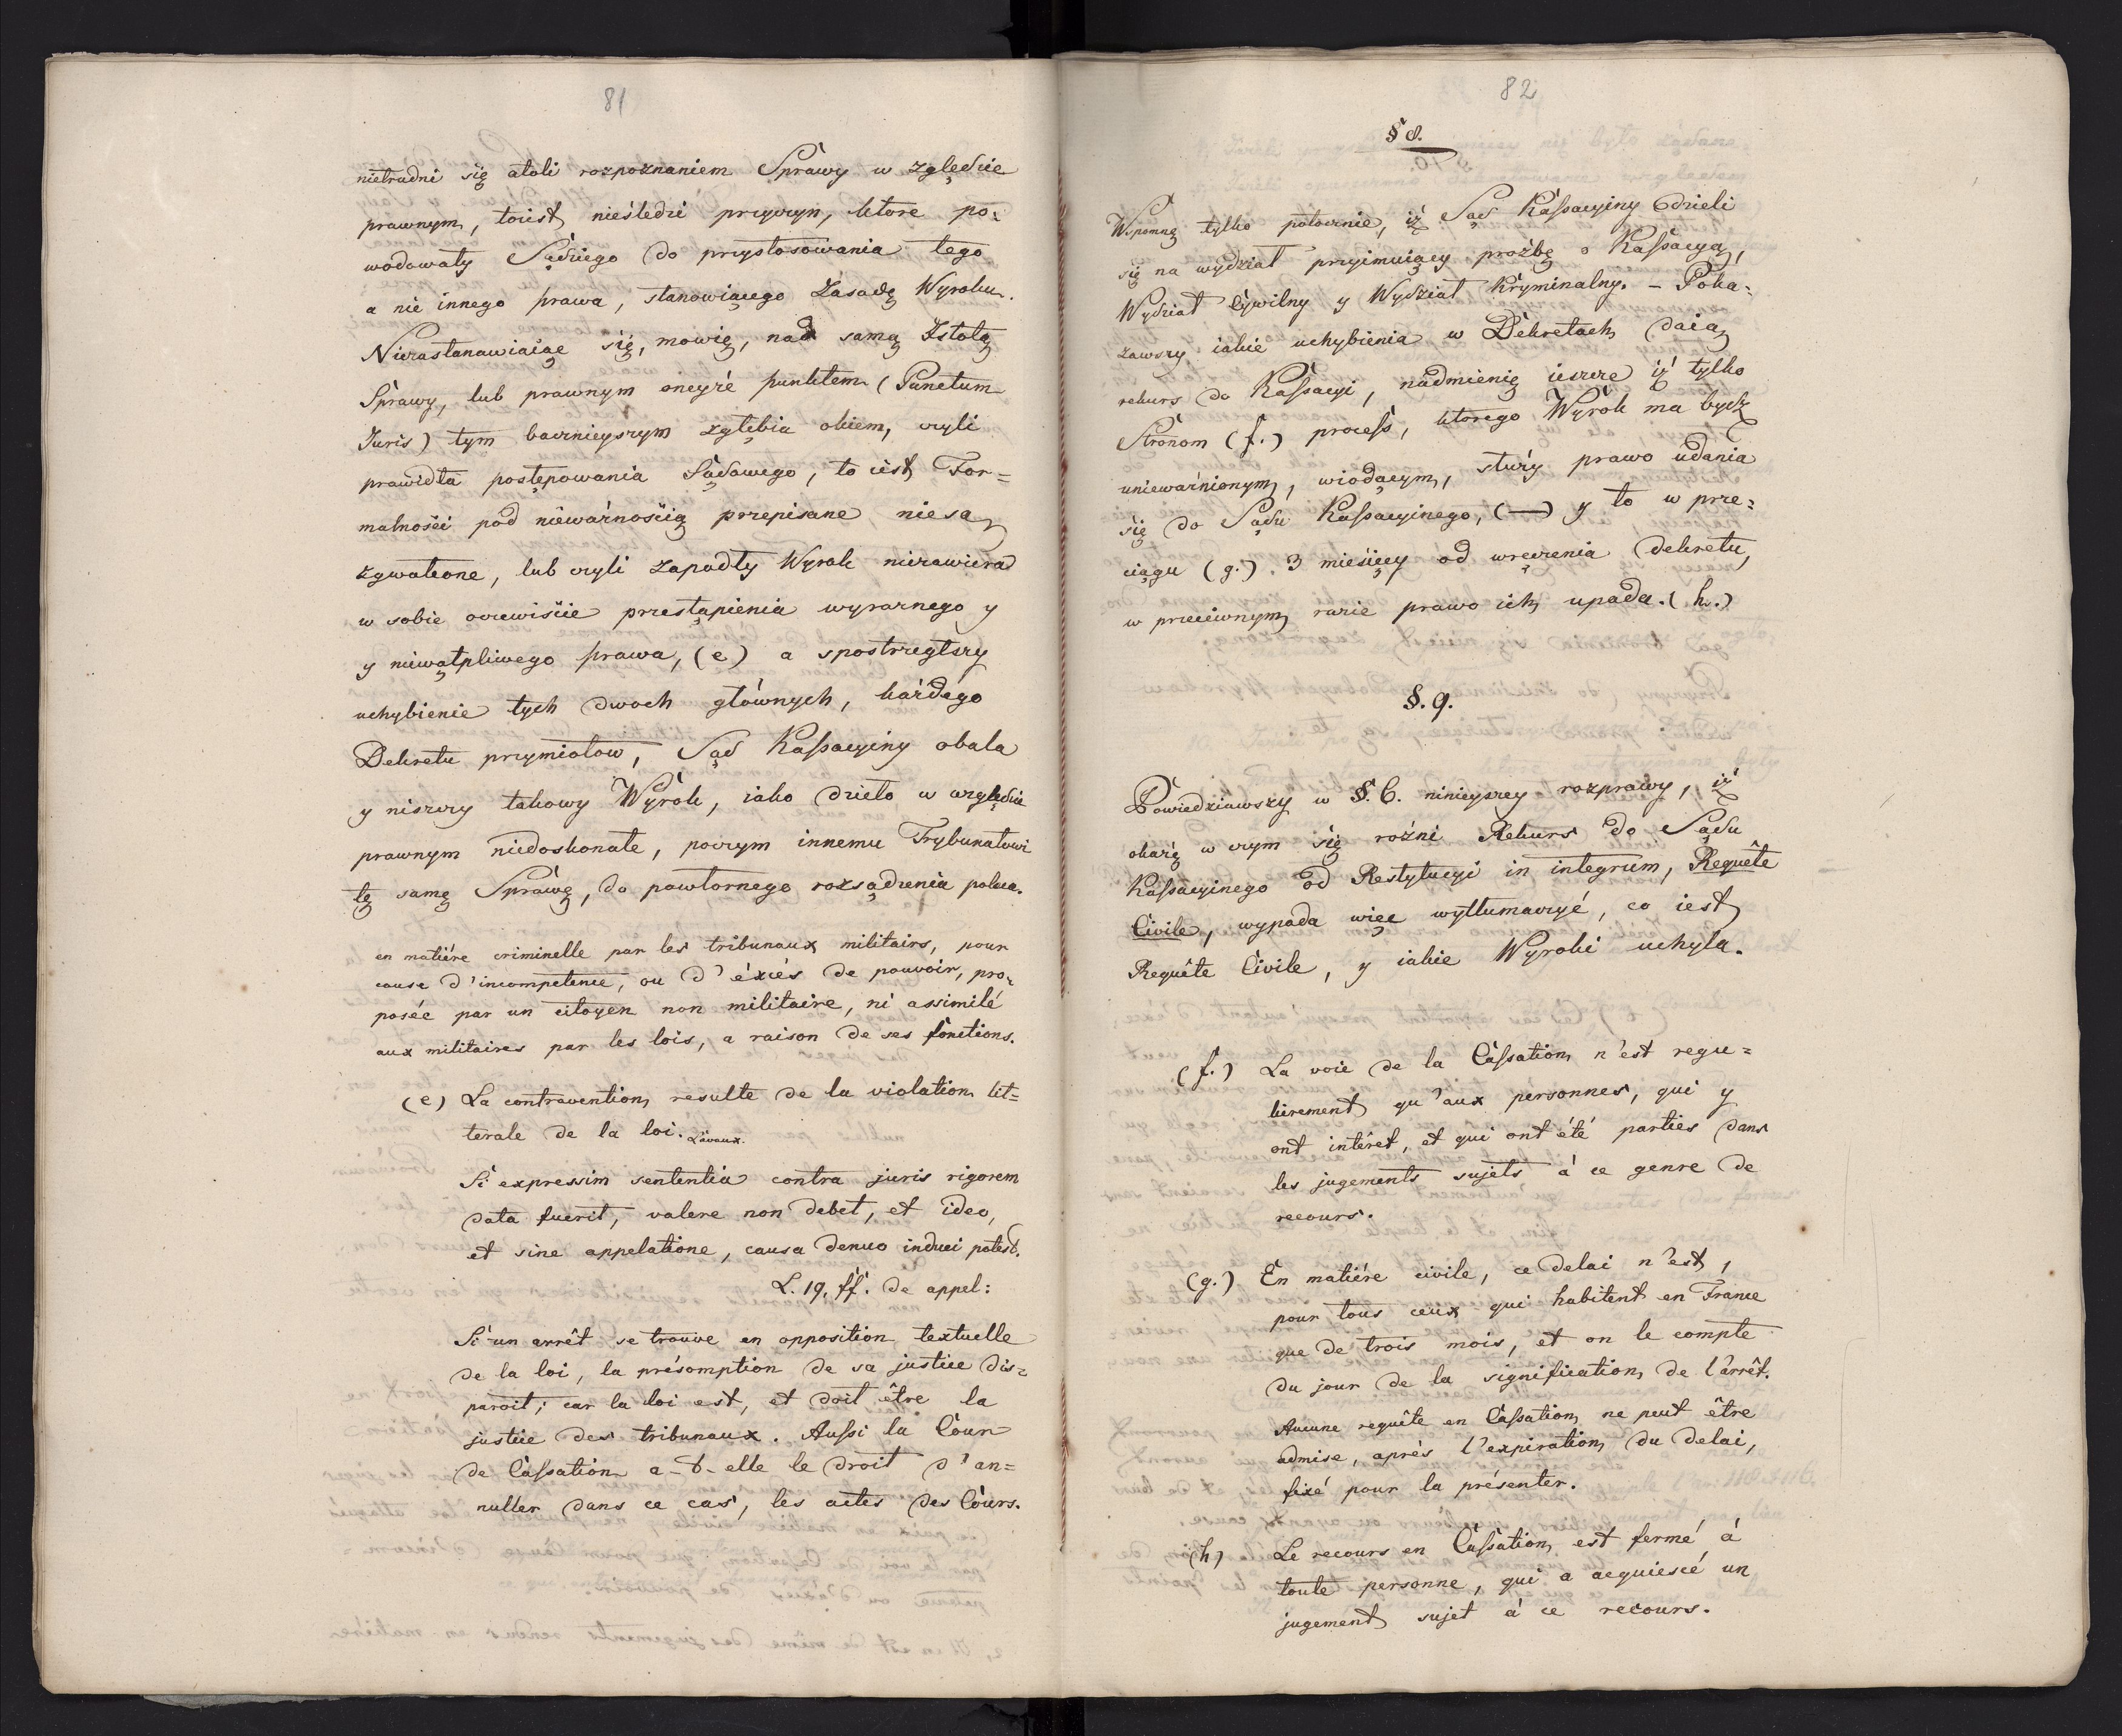 81
nietrudni się atoli rozpoznaniem Sprawy w zględzie
prawnym, toiest nieśledzi przyczyn, ktore po-
wodowały Sędziego do przystosowania tego
a nie innego prawa, stanowiącego Zasadę Wyroku.
Niezastanawiaiąc się, mowię, nad samą Istotą
Sprawy, lub prawnym oneyże punktem (Punctum
Juris) tym bacznieyszym zgłębia okiem, czyli
prawidła postępowania Sądowego, to iest For=
malności pod nieważnością przepisane niesą
zgwałcone, lub czyli zapadły Wyrok niezawiera
w sobie oczewiście przestąpienia wyraznego y
y niewątpliwego prawa, (e) a spostrzegłszy
uchybienie tych dwoch głównych, każdego
Dekretu przymiotow, Sąd Kassacyiny obala
y niszczy takowy Wyrok, iako dzieło w względzie
prawnym niedoskonałe, poczym innemu Trybunałowi
tę samę Sprawę, do powtornego rozsądzenia poleca.
en matiére criminelle par les tribunaux militairs, pour
cause d'incompetence, ou d'éxcés de pouvoir, pro-
posée par un citoyen non militaire, ni assimilé
aux militaires par les lois, a raison de ses fonctions.
(e) La contravention resulte de la violation lit=
terale de la loi. Lavaux.
Si expressim sententia contra juris rigorem
data fuerit, valere non debet, et ideo,
et sine appelatione, causa denuo induci potest.
L. 19. ff. de appel:
Si un arrêt se trouve en opposition textuelle
de la loi, la présomption de sa justice dis=
paroit; car la loi est, et doit être la
justice des tribunaux. Aussi la Cour
de Cassation a-t-elle le droit d'an=
nuller dans ce cas, les actes des Cours.
82
§ 8.
Wspomnę tylko potocznie, iż Sąd Kassacyiny dzieli
się na wydział przyimuiący prozbę o Kassacyą,
Wydział Cywilny y Wydział Kryminalny. – Poka=
zawszy iakie uchybienia w Dekretach daią
rekurs do Kassacyi, nadmienię ieszcze iż tylko
Stronom (f.) process, ktorego Wyrok ma bydź
unieważnionym, wiodącym, służy prawo udania
się do Sądu Kassacyinego, (—) y to w prze=
ciągu (g.) 3 miesięcy od wręczenia dekretu,
w przeciwnym razie prawo ich upada. (h.)
§. 9.
Powiedziawszy w §. 6. ninieyszey rozprawy, iż
okażę w czym się rożni Rekurs do Sądu
Kassacyinego od Restytucyi in integrum, Requête
Civile, wypada więc wytłumaczyć, co iest
Requête Civile, y iakie Wyroki uchyla.
(f.) La voie de la Cassation n'est regu=
lierement qu'aux personnes, qui y
ont intêret, et qui ont été parties dans
les jugements sujets á ce genre de
recours.
(g.) En matiére civile, ce delai n'est,
pour tous ceux qui habitent en France
que de trois mois, et on le compte
du jour de la signification de l'arrêt.
Aucune requête en Cassation ne peut être
admise, aprés l'expiration du delai,
fixé pour la présenter.
(h) Le recours en Cassation est fermé á
toute personne, qui a acquiescé un
jugement sujet á ce recours.